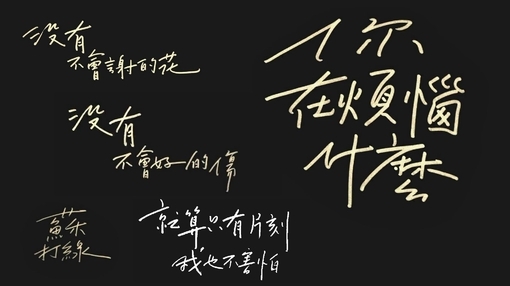 没有
不會謝的花
没有
不會好的傷
你
在煩惱
什麼
蘇禾
打線
就算只有片刻
我也不害怕